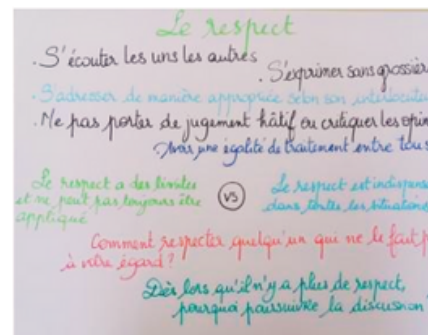 Le respect
. S'écouter les uns les autres
. S'exprimer sans grossièr
. S'adresser de manière appropriée selon son interlocute
. Ne pas porter de jugement hâtif ou critiquer les opin
. Avoir une égalité de traitement entre tous
Le respect a des limites
et ne peut pas toujours être
appliqué
VS
Le respect est indispens
dans toutes les situations
Comment respecter quelqu'un qui ne le fait p
à votre égard ?
Dès lors qu'il n'y a plus de respect,
pourquoi poursuivre la discussion